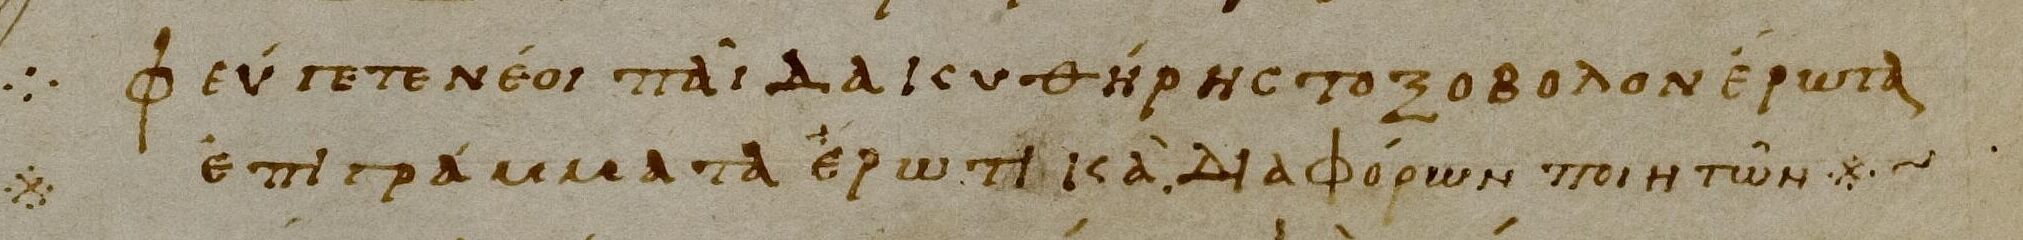 ∴ φεύγετε νέοι παῖδα κυθήρης τοξοβόλον ἔρωτα
※ ἐπιγράμματα ἐρωτικὰ διαφόρων ποιητῶν ※ ~